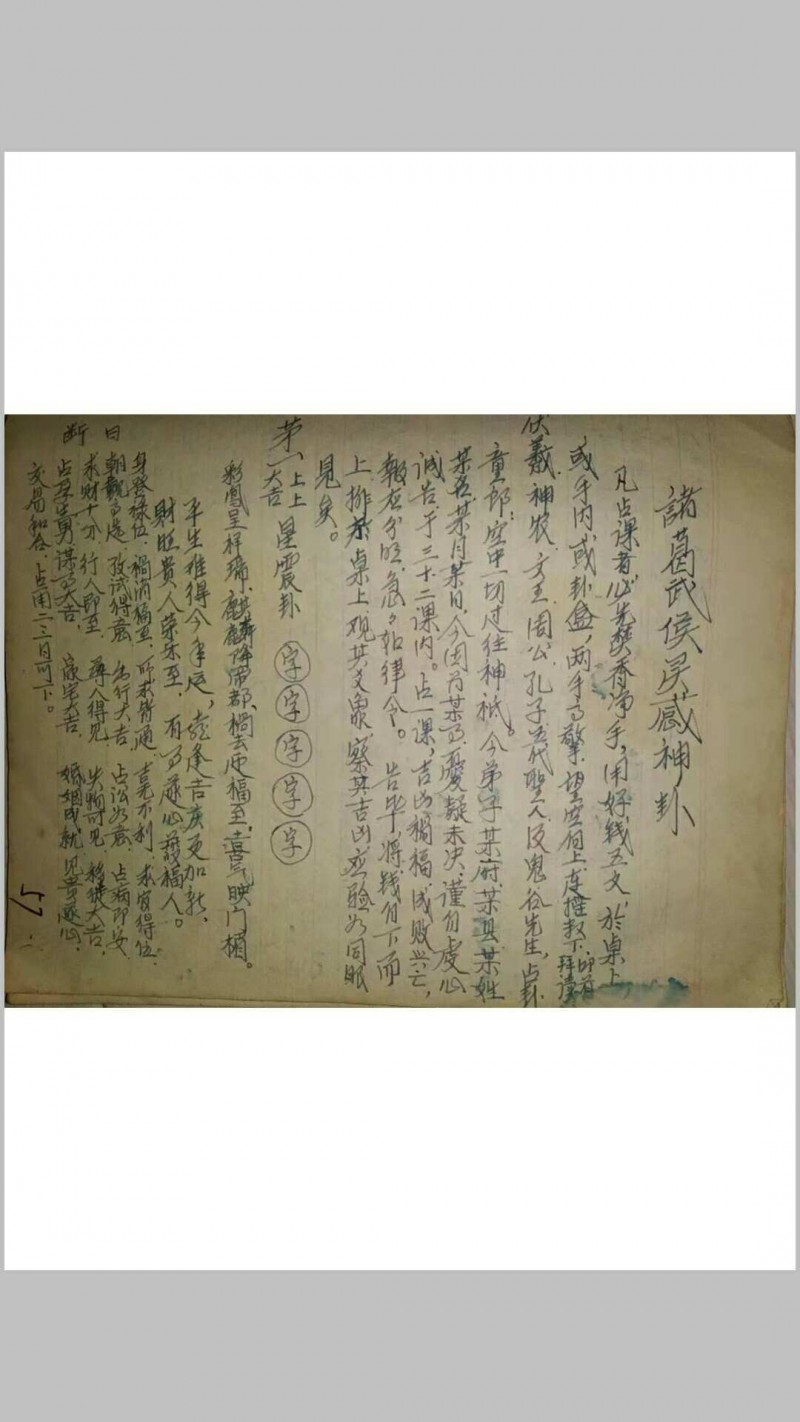 諸葛武侯灵感神卦
凡占课者必先焚香净手，用好钱五文，於桌上，
或手内，或卦盒，两手高擎，望空向上连摧数下，叩首拜读
伏羲、神农、文王、周公、孔子五代聖人及鬼谷先生，占卦
童郎，空中一切过往神祇。今弟子某府某县某姓
某名某月某日，今因为某事，憂疑未决，谨自虔心
诚告，于三十二课内，占一课，吉凶祸福，成败兴亡，
报在分明，急急如律令。告毕，将钱自下而
上，排於桌上，观其爻象，察其吉凶，应验如同眼
見矣。
第一 上上大吉 星震卦 字字字字字
彩鳳呈祥瑞，麒麟降帝都，禍去迎福至，喜氣映门楣。
平生难得今年足，老逢吉庆更加新，
财旺貴人荣乐至，有事遂心发福人。
断曰
身發禄位，禍消福至，所求皆通，求官得位，
朝觀，改试得意，出行大吉，占讼如意，占病即安，
求财十分，行人即至，尋人得見，失物可見，移徙大吉，
占孕生男，谋事大吉，家宅大吉，婚姻成就，見貴遂心，
交易和合，占用二三日可下。